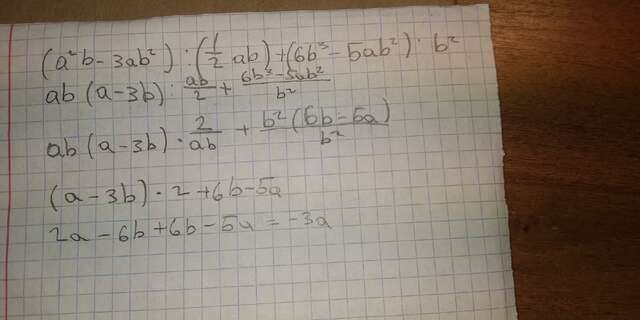 (a²b - 3ab²) : (1/2 ab) + (6b³ - 5ab²) : b²
ab (a - 3b) : ab/2 + (6b³ - 5ab²)/b²
ab (a - 3b) · 2/ab + b²(6b - 5a)/b²
(a - 3b) · 2 + 6b - 5a
2a - 6b + 6b - 5a = -3a